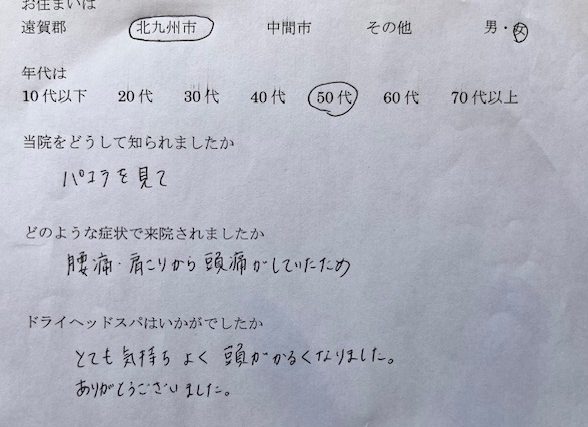 お住まいは
遠賀郡 北九州市 中間市 その他 男・女
年代は
10代以下 20代 30代 40代 50代 60代 70代以上
当院をどうして知られましたか
パコラを見て
どのような症状で来院されましたか
腰痛・肩こりから頭痛がしていたため
ドライヘッドスパはいかがでしたか
とても気持ちよく頭がかるくなりました。
ありがとうございました。